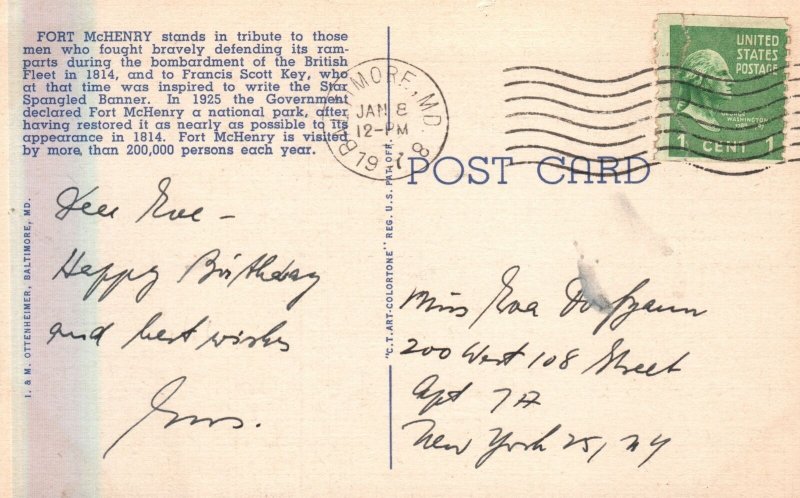 FORT McHENRY stands in tribute to those
men who fought bravely defending its ram-
parts during the bombardment of the British
Fleet in 1814, and to Francis Scott Key, who
at that time was inspired to write the Star
Spangled Banner. In 1925 the Government
declared Fort McHenry a national park, after
having restored it as nearly as possible to its
appearance in 1814. Fort McHenry is visited
by more than 200,000 persons each year.
I. & M. OTTENHEIMER, BALTIMORE, MD.
Dear Eva –
Happy Birthday
and best wishes
"C.T. ART-COLORTONE" REG. U.S. PAT. OFF.
BALTIMORE, MD
JAN 8
12-PM
UNITED
STATES
POSTAGE
GEORGE
WASHINGTON
1 CENT 1
POST CARD
Miss Eva
200 West 108 Street
Apt 7A
New York 25, NY